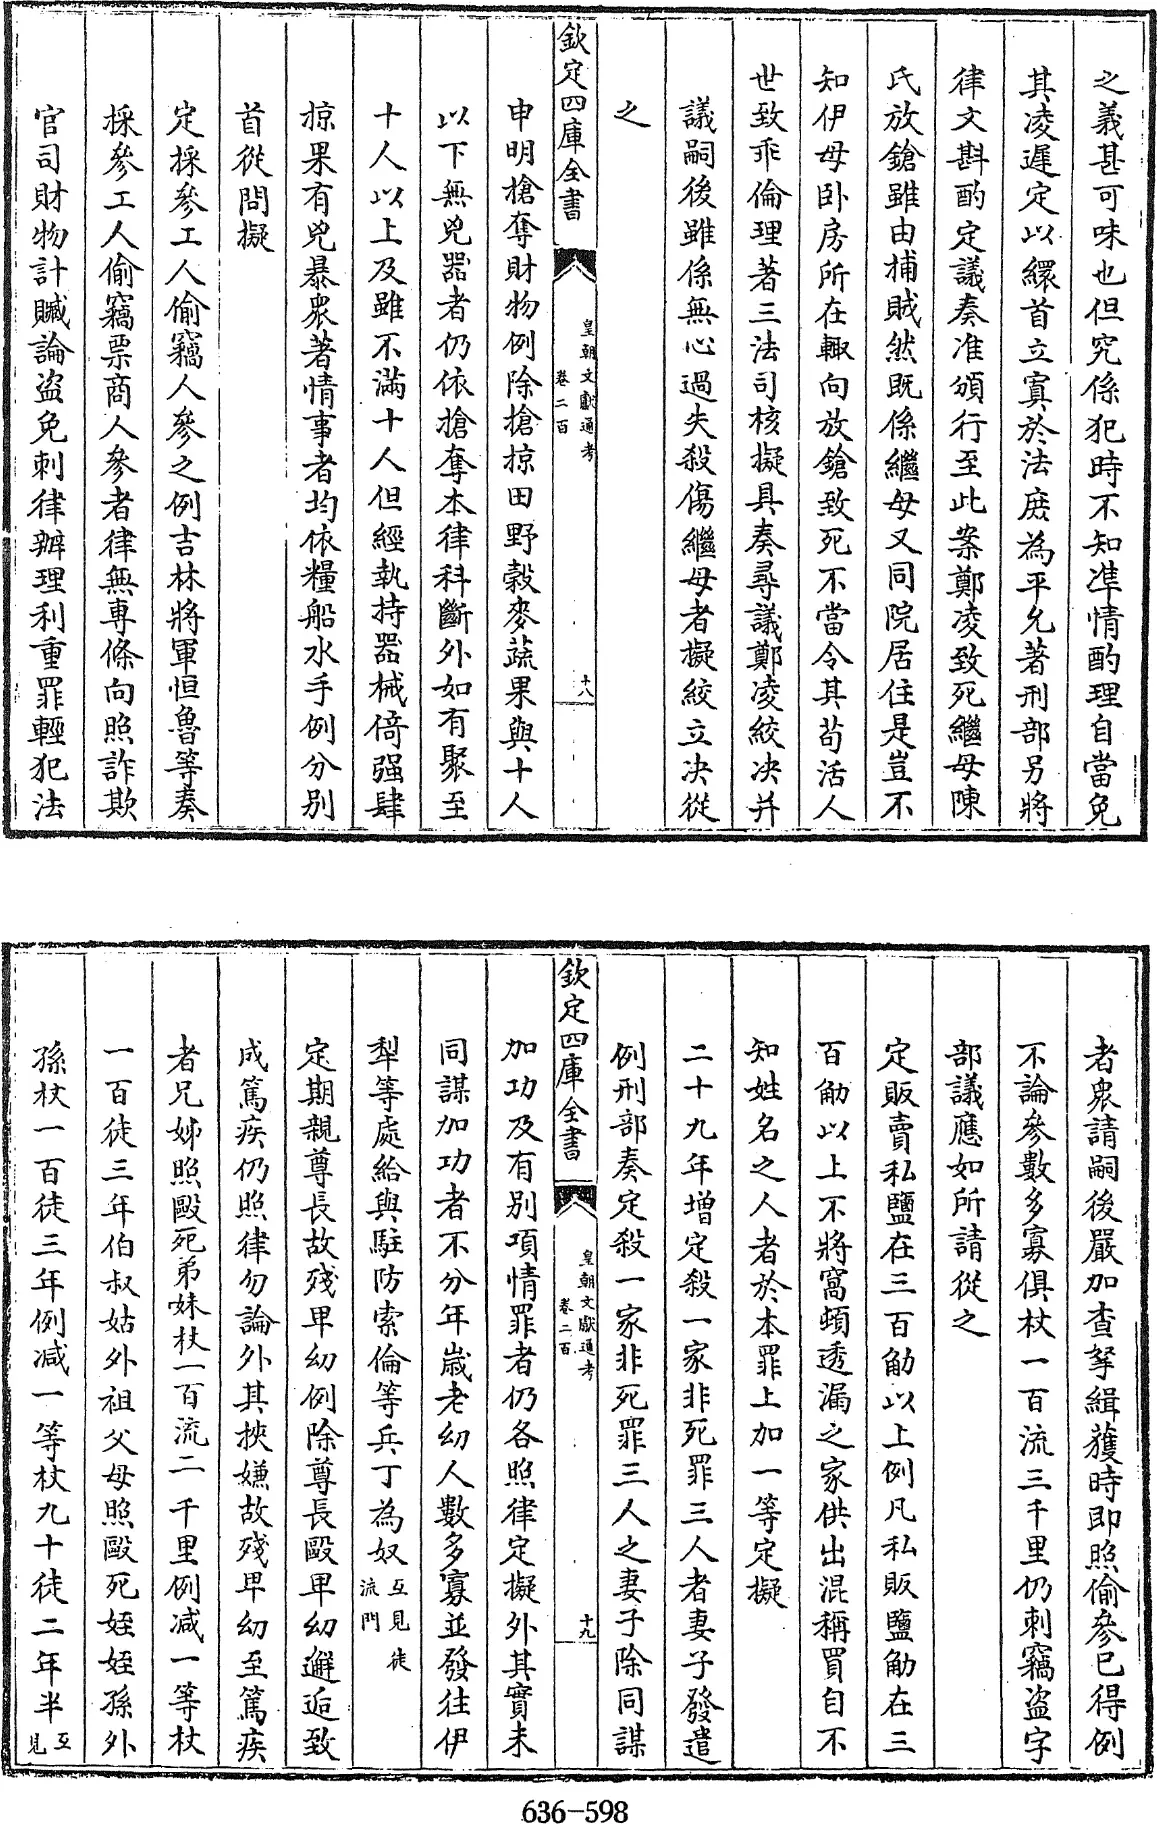 之義甚可味也但究係犯時不知準情酌理自當免
其凌遲定以繯首立寘於法庶為平允著刑部另將
律文斟酌定議奏准頒行至此案鄭凌致死繼母陳
氏放鎗雖由捕賊然既係繼母又同院居住是豈不
知伊母卧房所在輒向放鎗致死不當令其茍活人
世致乖倫理著三法司核擬具奏尋議鄭凌絞决并
議嗣後雖係無心過失殺傷繼母者擬絞立决從
之
欽定四庫全書
皇朝文獻通考
卷二百
十八
申明搶奪財物例除搶掠田野榖麥蔬果與十人
以下無兇器者仍依搶奪本律科斷外如有聚至
十人以上及雖不滿十人但經執持器械倚强肆
掠果有兇暴衆著情事者均依糧船水手例分别
首從問擬
定採參工人偷竊人參之例吉林將軍恒魯等奏
採參工人偷竊票商人參者律無專條向照詐欺
官司財物計贓論盜免刺律辦理利重罪輕犯法
者衆請嗣後嚴加查拏緝獲時即照偷參已得例
不論參數多寡俱杖一百流三千里仍刺竊盜字
部議應如所請從之
定販賣私鹽在三百觔以上例凡私販鹽觔在三
百觔以上不將窩頓透漏之家供出混稱買自不
知姓名之人者於本罪上加一等定擬
二十九年增定殺一家非死罪三人者妻子發遣
例刑部奏定殺一家非死罪三人之妻子除同謀
欽定四庫全書
皇朝文獻通考
卷二百
十九
加功及有别項情罪者仍各照律定擬外其實未
同謀加功者不分年歲老幼人數多寡並發往伊
犁等處給與駐防索倫等兵丁為奴互見徒流門
定期親尊長故殘卑幼例除尊長毆卑幼邂逅致
成篤疾仍照律勿論外其挾嫌故殘卑幼至篤疾
者兄姊照毆死弟妹杖一百流二千里例減一等杖
一百徒三年伯叔姑外祖父母照毆死姪姪孫外
孫杖一百徒三年例減一等杖九十徒二年半互見
636-598